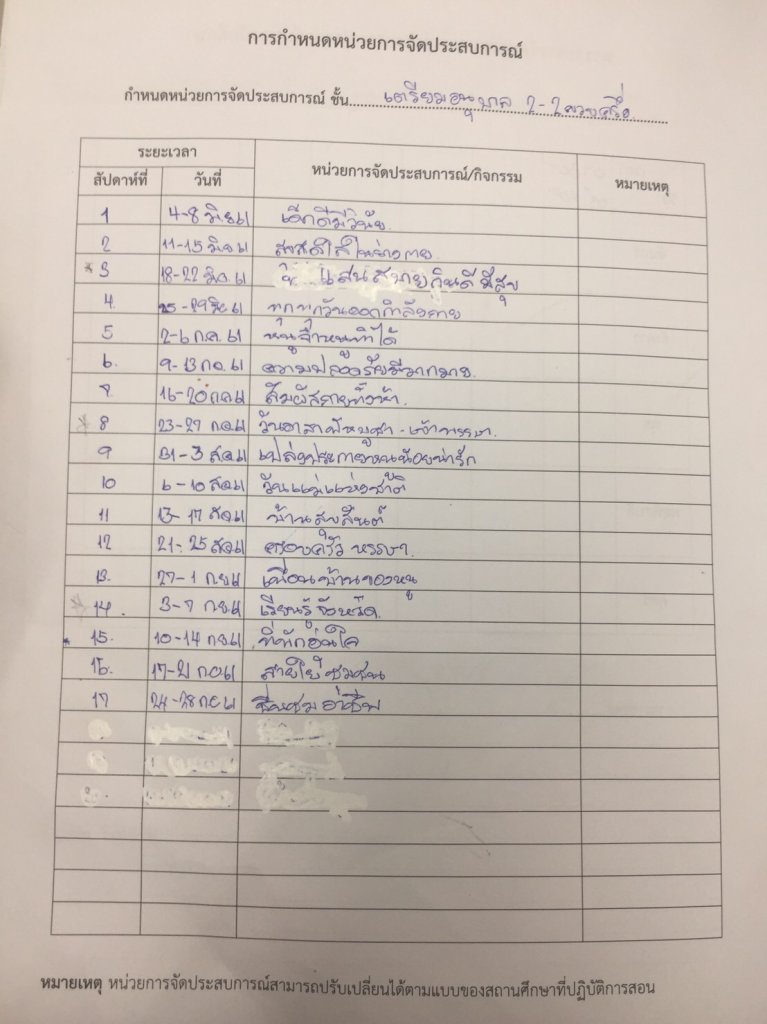 การกำหนดหน่วยการจัดประสบการณ์
กำหนดหน่วยการจัดประสบการณ์ ชั้น เตรียมอนุบาล 2-2ขวบครึ่ง
ระยะเวลา หน่วยการจัดประสบการณ์/กิจกรรม หมายเหตุ
สัปดาห์ที่ วันที่
1 4-8 มิย61 เด็กดีมีวินัย
2 11-15 มิย61 สดใสในร่างกาย
*3 18-22 มิย.61 แสนสบายกินดีมีสุข
4 25-29มิย61 ทุกๆวันออกกำลังกาย
5 2-6 ก.ค.61 หนูจ๋าหนูทำได้
6. 9-13 กค.61 ความปลอดภัยมีมากมาย
7 16-20กค61 สัมผัสกายทั้งห้า
*8 23-27 กค61 วันอาสาฬหบูชา-เข้าพรรษา
9 31-3 สค61 เปล่งประกายหนูน้อยน่ารัก
10 6-10 สค61 วันแม่แห่งชาติ
11 13-17 สค61 บ้านสุขสันต์
12 21-25 สค61 ครอบครัวหรรษา
13. 27-1 กย61 เพื่อนบ้านของหนู
*14. 3-7 กย61 เรียนรู้จังหวัด
*15. 10-14 กย61 ที่พักอุ่นใจ
16. 17-21 กย61 สายใยชุมชน
17 24-28กย61 ชื่นชมอาชีพ
หมายเหตุ หน่วยการจัดประสบการณ์สามารถปรับเปลี่ยนได้ตามแบบของสถานศึกษาที่ปฏิบัติการสอน